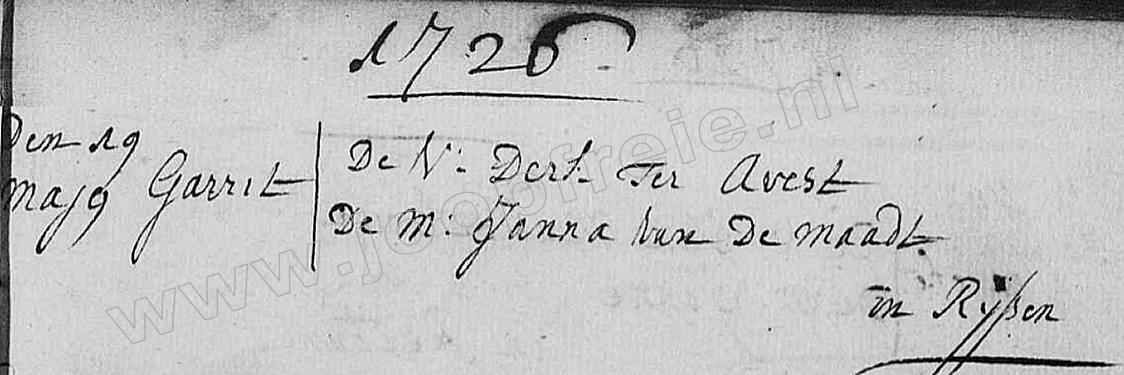 1726
Den 19
majg Garrit
De V: Derk Ter Avest
De M: Janna van De maadt
in Ryssen
www.joopfreie.nl